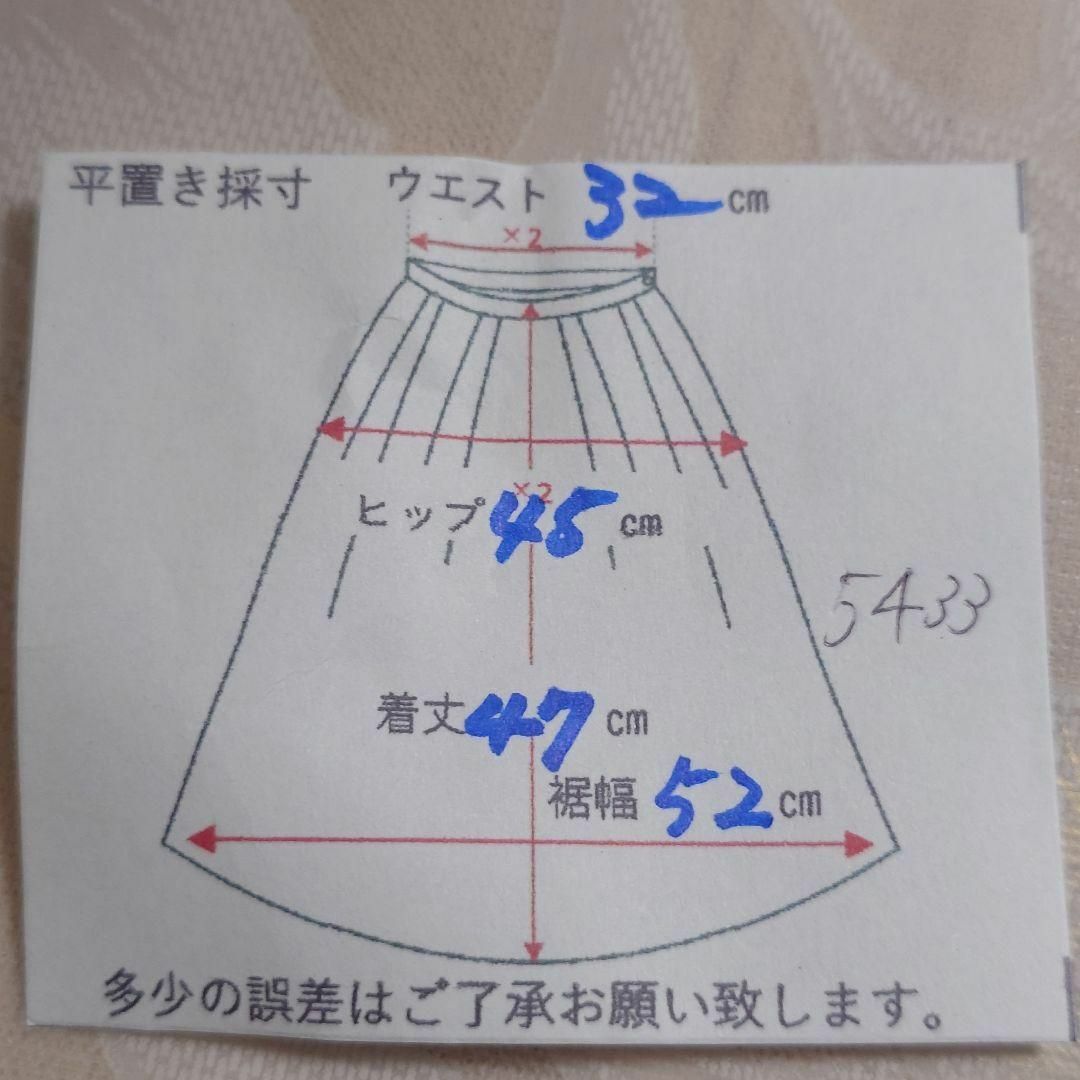 平置き採寸 ウエスト 32 cm
×2
×2
ヒップ 45 cm
5433
着丈 47 cm
裾幅 52 cm
多少の誤差はご了承お願い致します。